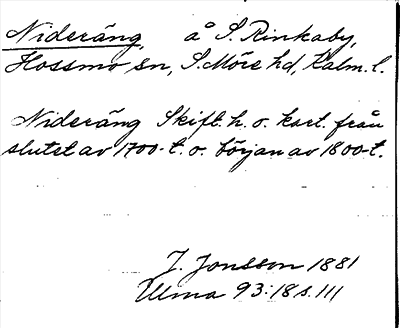 Nideräng, å S. Rinkaby,
Hossmo sn, S. Möre hd, Kalm. l.
Nideräng Skift. h. o. kart. från
slutet av 1700-t. o. början av 1800-t.
J. Jonsson 1881
Ulma 93:18 s. 111